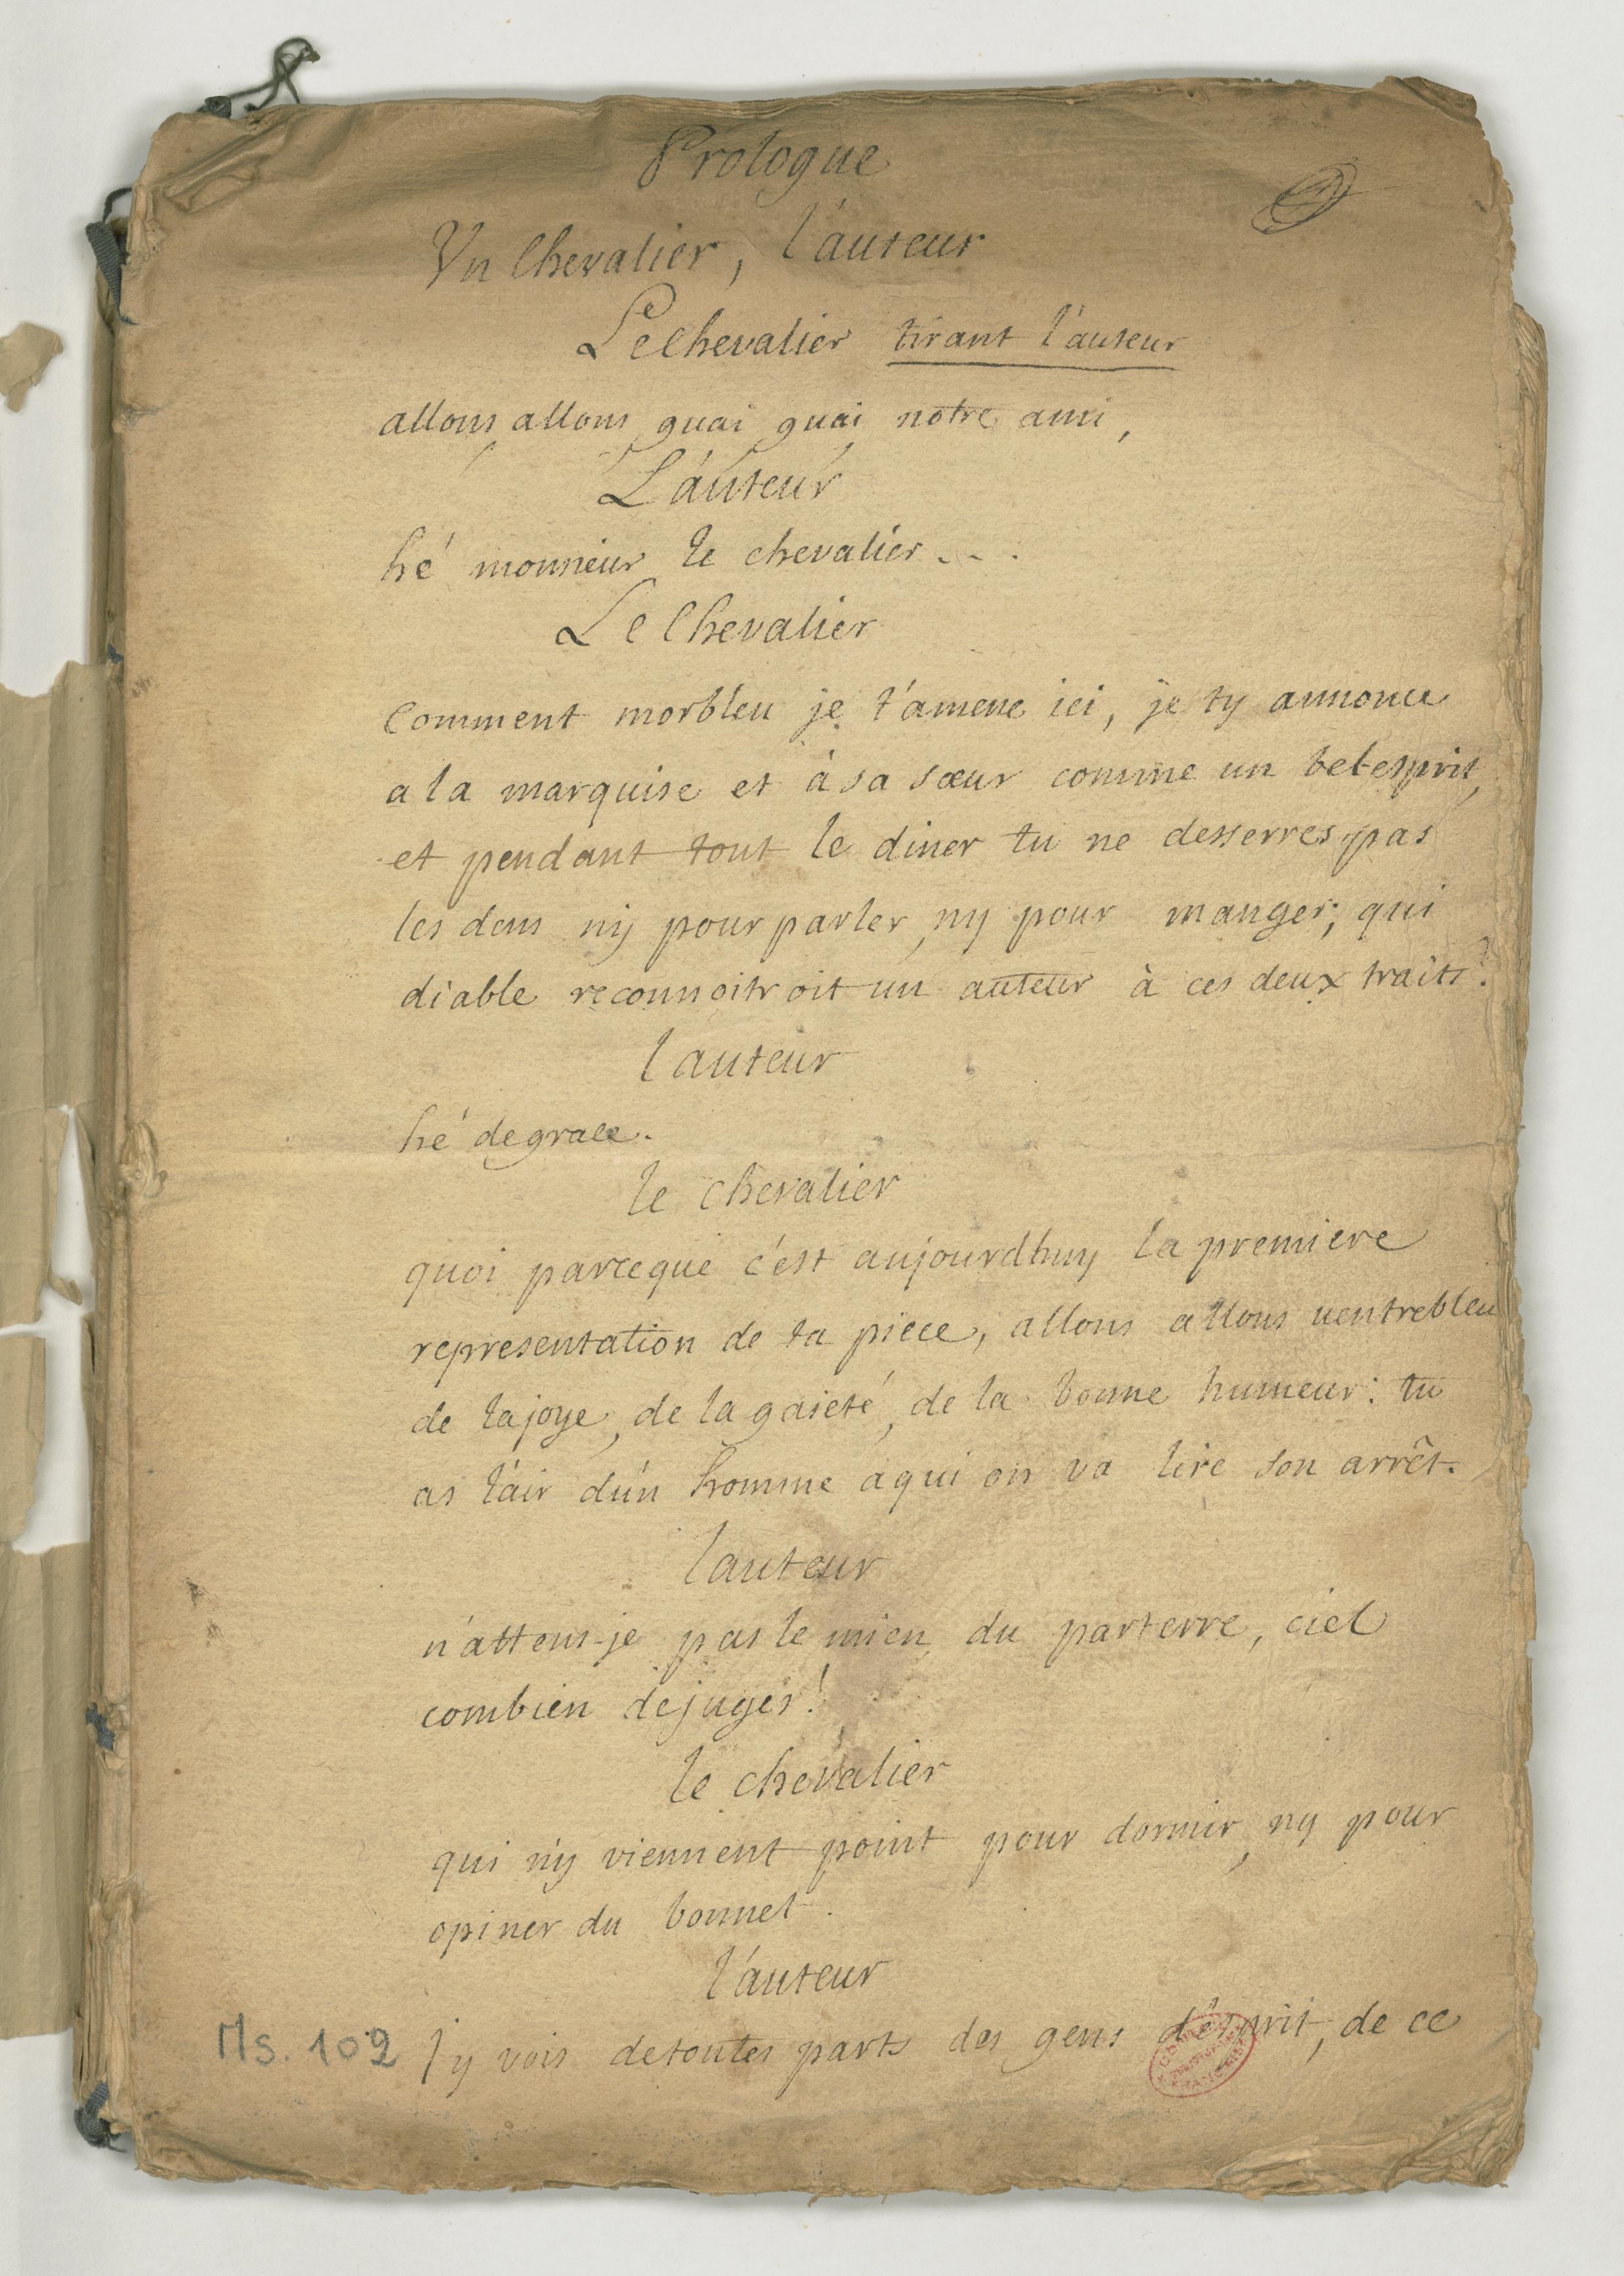 Prologue
Un Chevalier, l'auteur
Le Chevalier tirant l'auteur
allons allons guai guai notre ami,
L'auteur
hé monsieur le chevalier...
Le Chevalier
Comment morbleu je t'amene ici, je ty annonce
a la marquise et à sa sœur comme un bel esprit,
et pendant tout le diner tu ne desserres pas
les dens ny pour parler, ny pour manger; qui
diable reconnoitroit un auteur à ces deux traits?
l'auteur
hé de grace.
le chevalier
quoi parceque c'est aujourdhuy la premiere
representation de ta piece, allons allons ventrebleu
de la joye, de la gaieté, de la bonne humeur: tu
as l'air d'un homme a qui on va lire son arrêt.
l'auteur
n'attens-je pas le mien du parterre, ciel
combien de juges!
le chevalier
qui n'y viennent point pour dormir, ny pour
opiner du bonnet.
l'auteur
Ms. 102
j'y vois de toutes parts des gens d'esprit, de ce